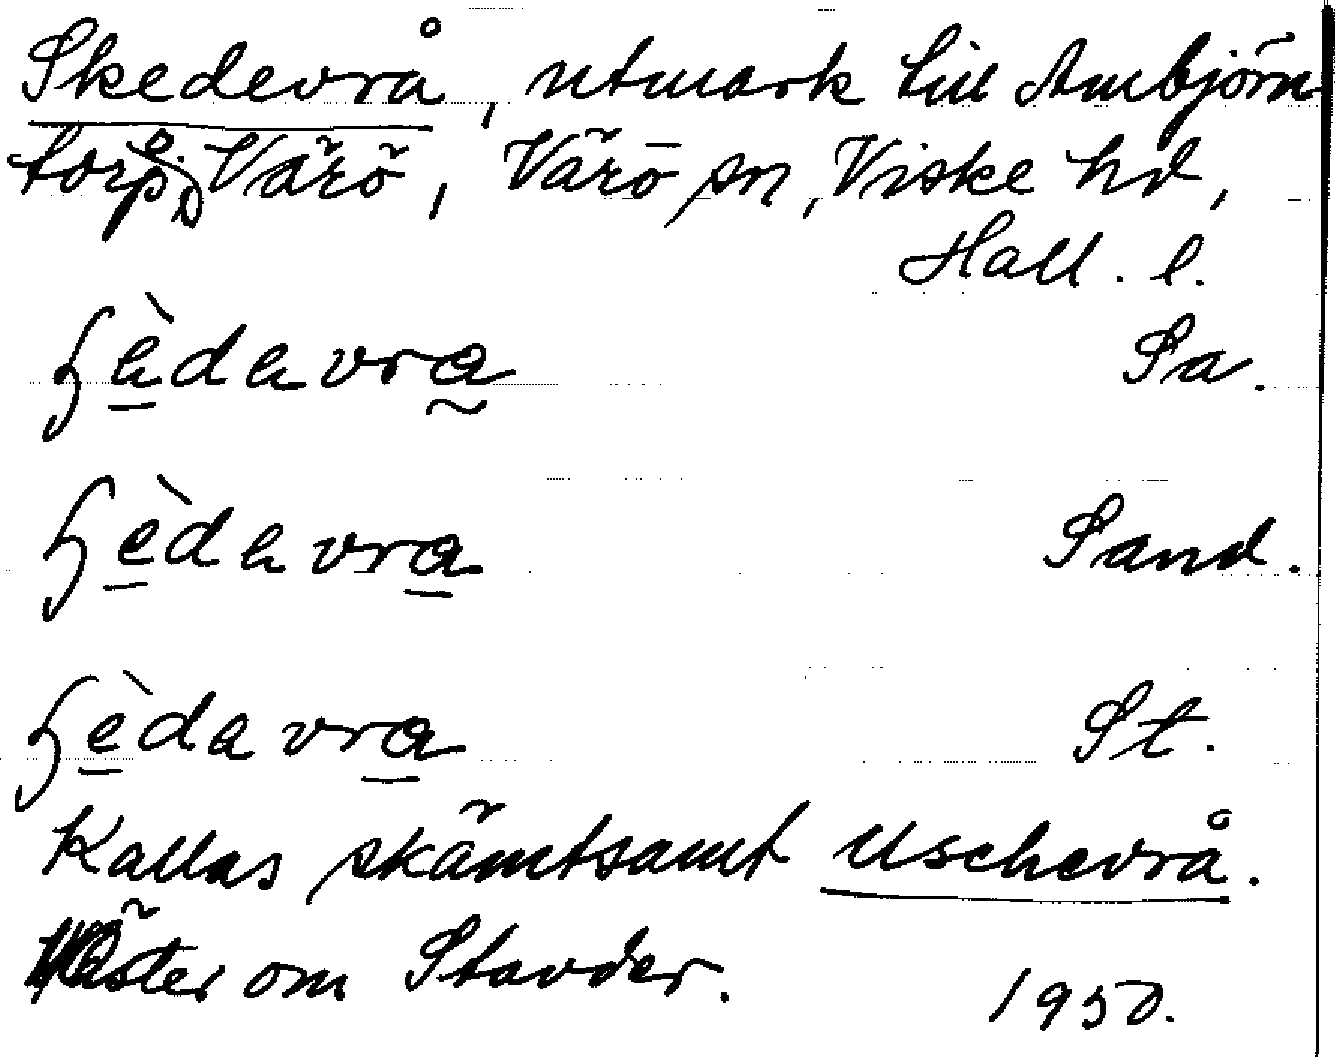 Skedevrå, utmark till Ambjörn
torp, Värö, Värö sn, Viske hd,
Hall. l.
ɧèdavra Sa.
ɧèdavra Sand.
ɧèdavra St.
Kallas skämtsamt Uschevrå.
Väster om Stavder.
1950.